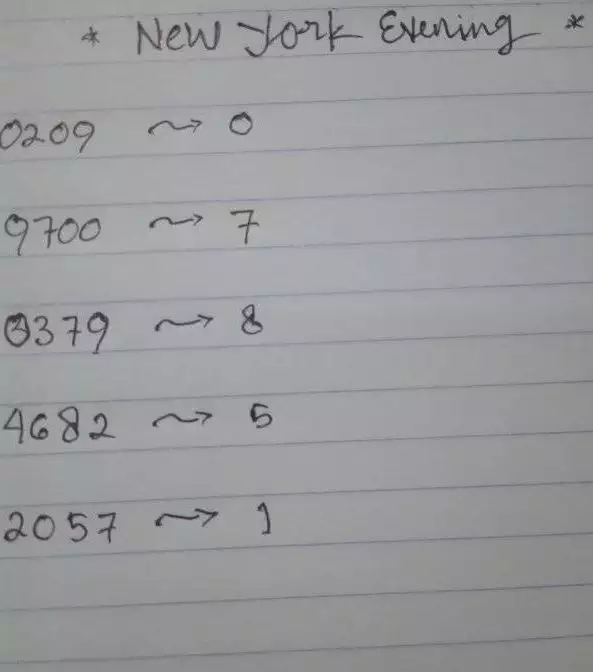 * New York Evening *
0209 ⤳ 0
9700 ⤳ 7
0379 ⤳ 8
4682 ⤳ 5
2057 ⤳ 1